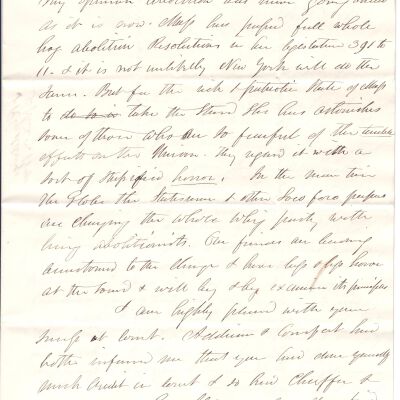 as it is now. Mass has passed full whole
hog abolition Resolutions in her Legislature 391 to
11. & it is not unlikely New York will do the
same. But for the rich & patriotic State of Mass
to do so is take the Stand She has astonishes
some of those who are so fearful of the terrible
effects on the Union. They regard it with a
sort of stupified horror. In the mean time
the Globe the Statesman & other Loco foco papers
are charging the whole Whig party with
being abolitionists. Our friends are becoming
accustomed to the charge & have less & less horror
at the sound & will by & by examine its principles
I am highly pleased with your
success at court. Addison & Comfort have
both informed me that you have done yourself
much credit in court & so has Chaffee &